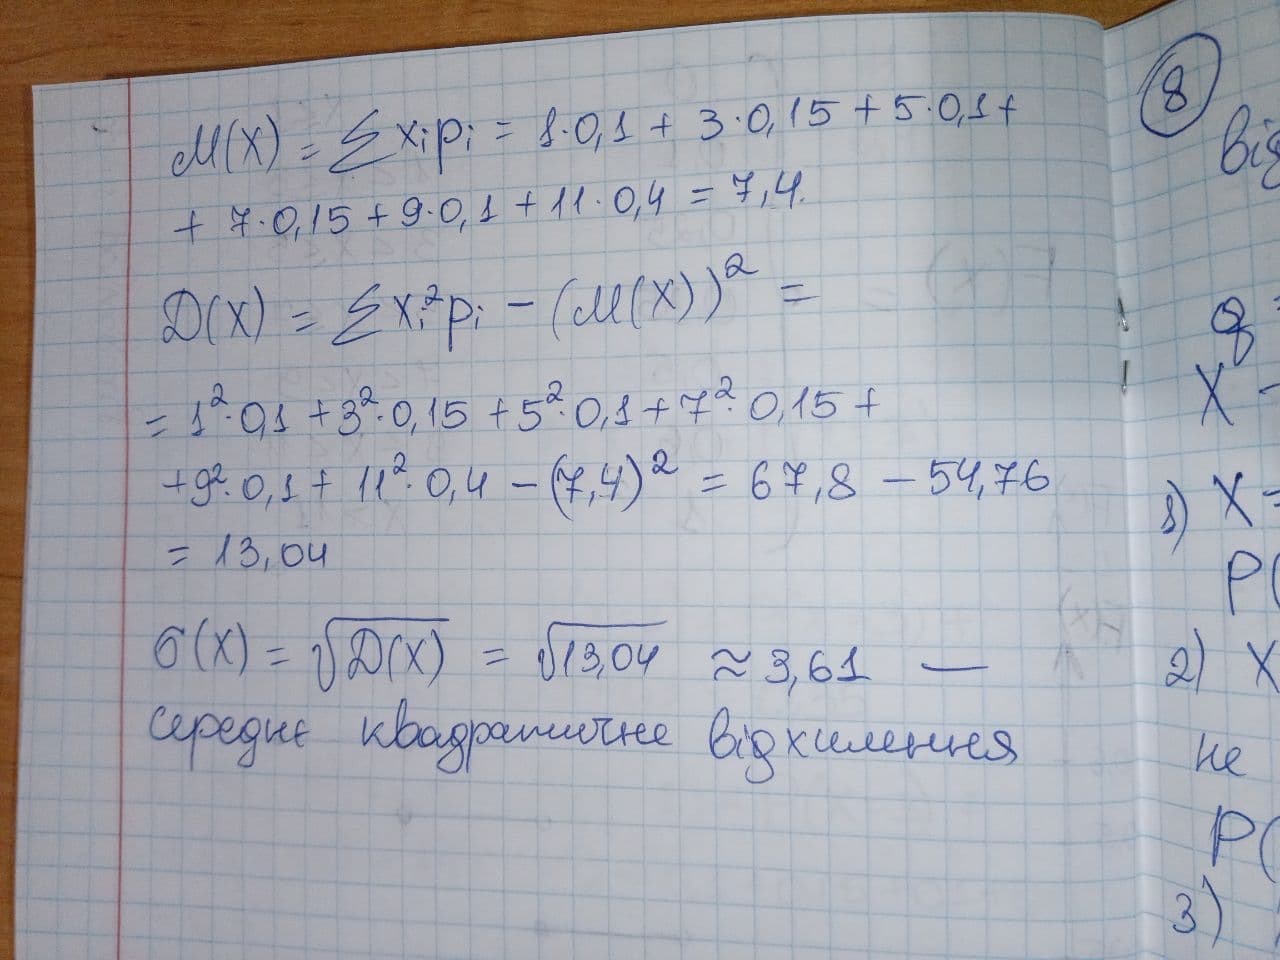 M(X) = ∑ xᵢpᵢ = 1·0,1 + 3·0,15 + 5·0,1 +
+ 7·0,15 + 9·0,1 + 11·0,4 = 7,4.
D(X) = ∑ xᵢ²pᵢ − (M(X))² =
= 1²·0,1 + 3²·0,15 + 5²·0,1 + 7²·0,15 +
+ 9²·0,1 + 11²·0,4 − (7,4)² = 67,8 − 54,76
= 13,04
σ(X) = √D(X) = √13,04 ≈ 3,61 —
середнє квадратичне відхилення
8
від
q =
X −
1) X =
P(
2) X
не
P(
3)